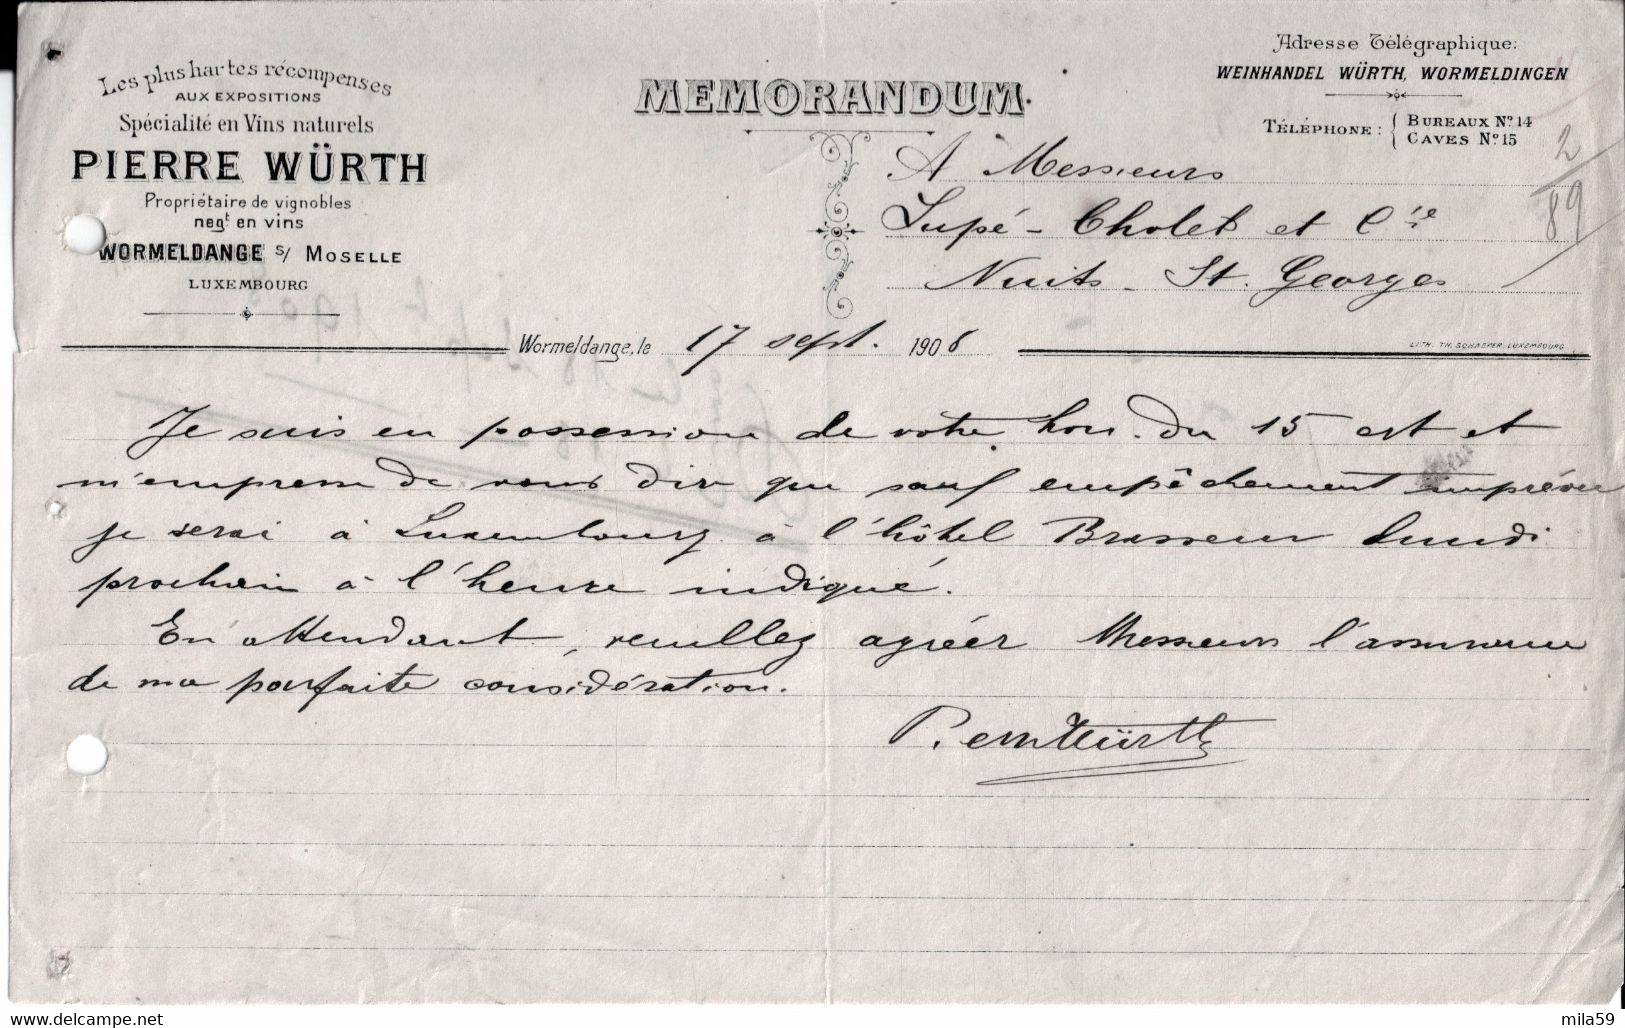 Les plus hautes récompenses
AUX EXPOSITIONS
Spécialité en Vins naturels
PIERRE WÜRTH
Propriétaire de vignobles
negt en vins
WORMELDANGE s/ MOSELLE
LUXEMBOURG
MEMORANDUM.
Adresse Télégraphique:
WEINHANDEL WÜRTH, WORMELDINGEN
TÉLÉPHONE: { BUREAUX No 14
CAVES No 15
2/89
A Messieurs
Lupé-Cholet et Cie
Nuits-St. Georges
Wormeldange, le 17 sept. 1906
LITH. TH. SCHAEFER, LUXEMBOURG
Je suis en possession de votre hon. du 15 ct et
m'empresse de vous dire que sauf empêchement imprévu
je serai à Luxembourg à l'hôtel Brasseur lundi
prochain à l'heure indiqué.
En attendant, veuillez agréér Messieurs l'assurance
de ma parfaite considération.
P. Würth
delcampe.net
mila59